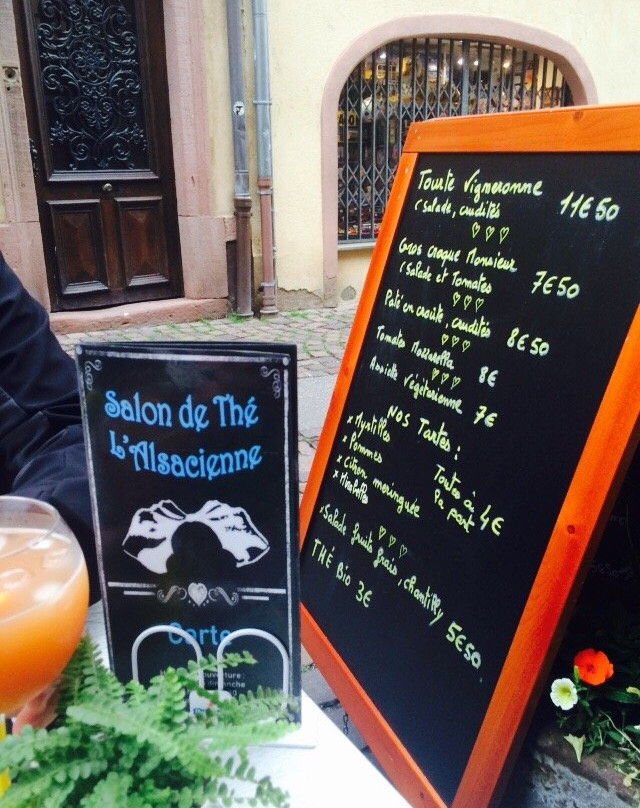 Salon de Thé
L'Alsacienne
Carte
Tourte Vigneronne 11€50
(Salade, crudités
Gros croque Monsieur
(Salade et Tomates 7€50
Paté en croute, crudités 8€50
Tomates Mozzarella 8€
Assiette Végétarienne 7€
NOS Tartes :
x Myrtilles
x Pommes
x Citron meringuée
x Mirabelles
Toutes à 4€
la part
x Salade fruits frais, chantilly 5€50
THÉ Bio 3€